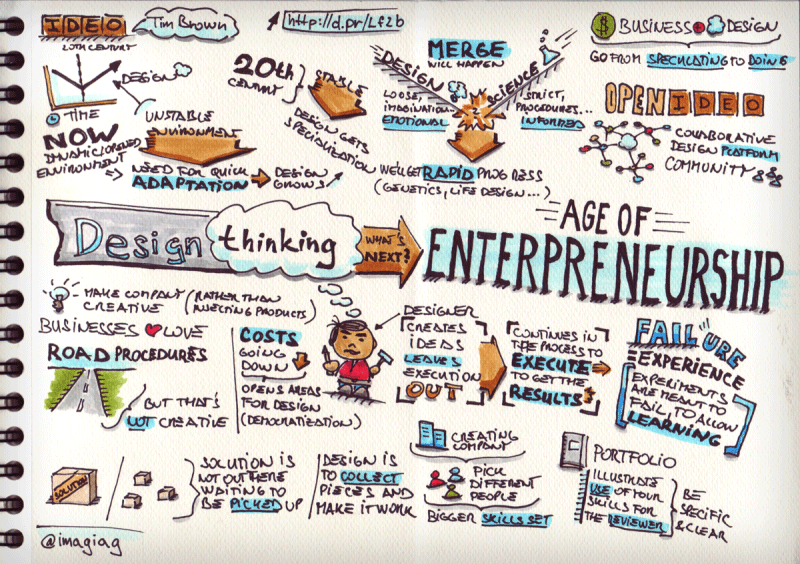 IDEO
20TH CENTURY
Tim Brown
http://d.pr/Lf2b
DESIGN
TIME
NOW
DYNAMIC/OPENED
ENVIRONMENT
UNSTABLE
ENVIRONMENT
NEED FOR QUICK
ADAPTATION
DESIGN
GROWS
20th
CENTURY
STABLE
DESIGN GETS
SPECIALIZATION
MERGE
WILL HAPPEN
DESIGN
SCIENCE
LOOSE,
IMAGINATION...
EMOTIONAL
STRICT,
PROCEDURES...
INFORMED
WE'LL GET RAPID PROGRESS
(GENETICS, LIFE DESIGN...)
BUSINESS + DESIGN
GO FROM SPECULATING TO DOING
OPEN IDEO
COLLABORATIVE
DESIGN PLATFORM
COMMUNITY
Design thinking
WHAT'S
NEXT?
AGE OF
ENTERPRENEURSHIP
MAKE COMPANY
CREATIVE
(RATHER THAN
INJECTING PRODUCTS)
BUSINESSES LOVE
ROAD PROCEDURES
BUT THAT'S
NOT CREATIVE
COSTS
GOING
DOWN
OPENS AREAS
FOR DESIGN
(DEMOCRATIZATION)
DESIGNER
CREATES
IDEAS
LEAVES
EXECUTION
OUT
CONTINUES IN
THE PROCESS TO
EXECUTE
TO GET THE
RESULTS
FAILURE
EXPERIENCE
EXPERIMENTS
ARE MEANT TO
FAIL, TO ALLOW
LEARNING
SOLUTION
SOLUTION IS
NOT OUT THERE
WAITING TO
BE PICKED UP
DESIGN IS
TO COLLECT
PIECES AND
MAKE IT WORK
CREATING
COMPANY
PICK
DIFFERENT
PEOPLE
BIGGER SKILLS SET
PORTFOLIO
ILLUSTRATE
USE OF YOUR
SKILLS FOR
THE REVIEWER
BE
SPECIFIC
& CLEAR
@imagiag